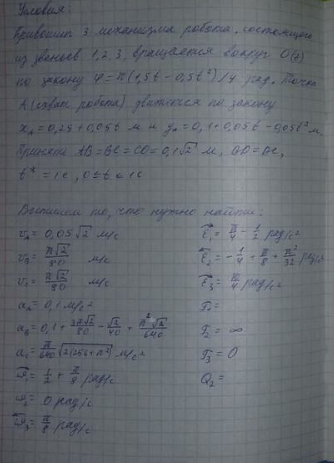 Условия:
Привошип 3 механизма робота, состоящего
из звеньев 1, 2, 3, вращается вокруг O(z)
по закону φ = π(1,5t - 0,5t²)/4 рад. Точка
A (схват робота) движется по закону
xₐ = 0,25 + 0,05t м и yₐ = 0,1 + 0,05t - 0,05t² м.
Принять AB = BC = CO = 0,1√2 м,
t* = 1c, 0 ≤ t ≤ 1c
Выпишем то, что нужно найти:
vₐ = 0,05√2 м/с
v_B = π√2/80 м/с
v_C = π√2/80 м/с
aₐ = 0,1 м/с²
a_B = 0,1 + 3π√2/80 - √2/40 + π²√2/640
= 1/2 + π/8 рад/с
0 рад/с
= π/8 рад/с
ε₁ = π/4 - 1/2 рад/с²
= -1/4 + π/8 + π²/32 рад/с²
ε₃ = π/4 рад/с²
= ∞
= 0
Q₂ =